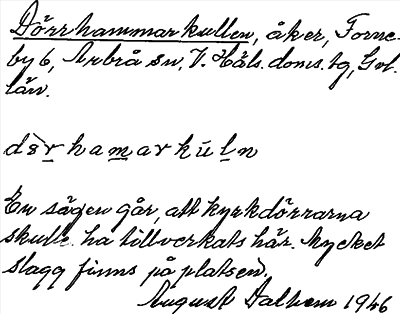 Dörrhammarkullen, åker, Forne-
by 6, Arbrå sn, V. Häls. doms. tg, Gvl.
län.
dör̲hama̲rkūl̲n
En sägen går, att kyrkdörrarna
skulle ha tillverkats här. Mycket
slagg finns på platsen.
August Dalhem 1946